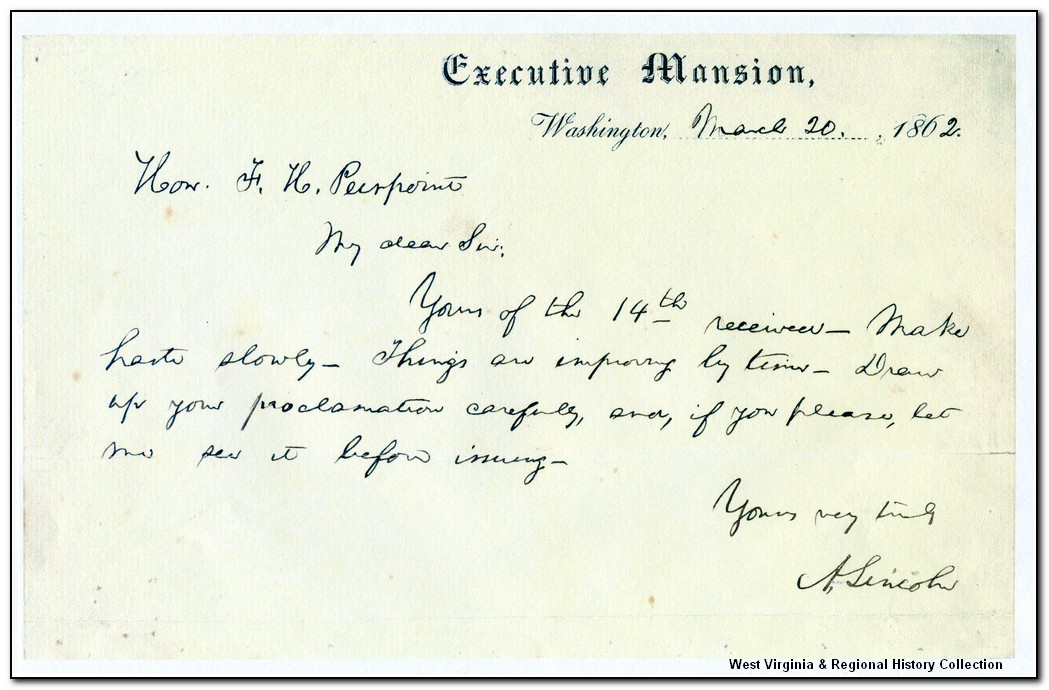 Executive Mansion,
Washington, March 20. , 1862.
Hon. F. H. Peirpoint
My dear Sir:
Yours of the 14th received— Make
haste slowly— Things are improving by time— Draw
up your proclamation carefully, and, if you please, let
me see it before issuing—
Yours very truly
A. Lincoln
West Virginia & Regional History Collection